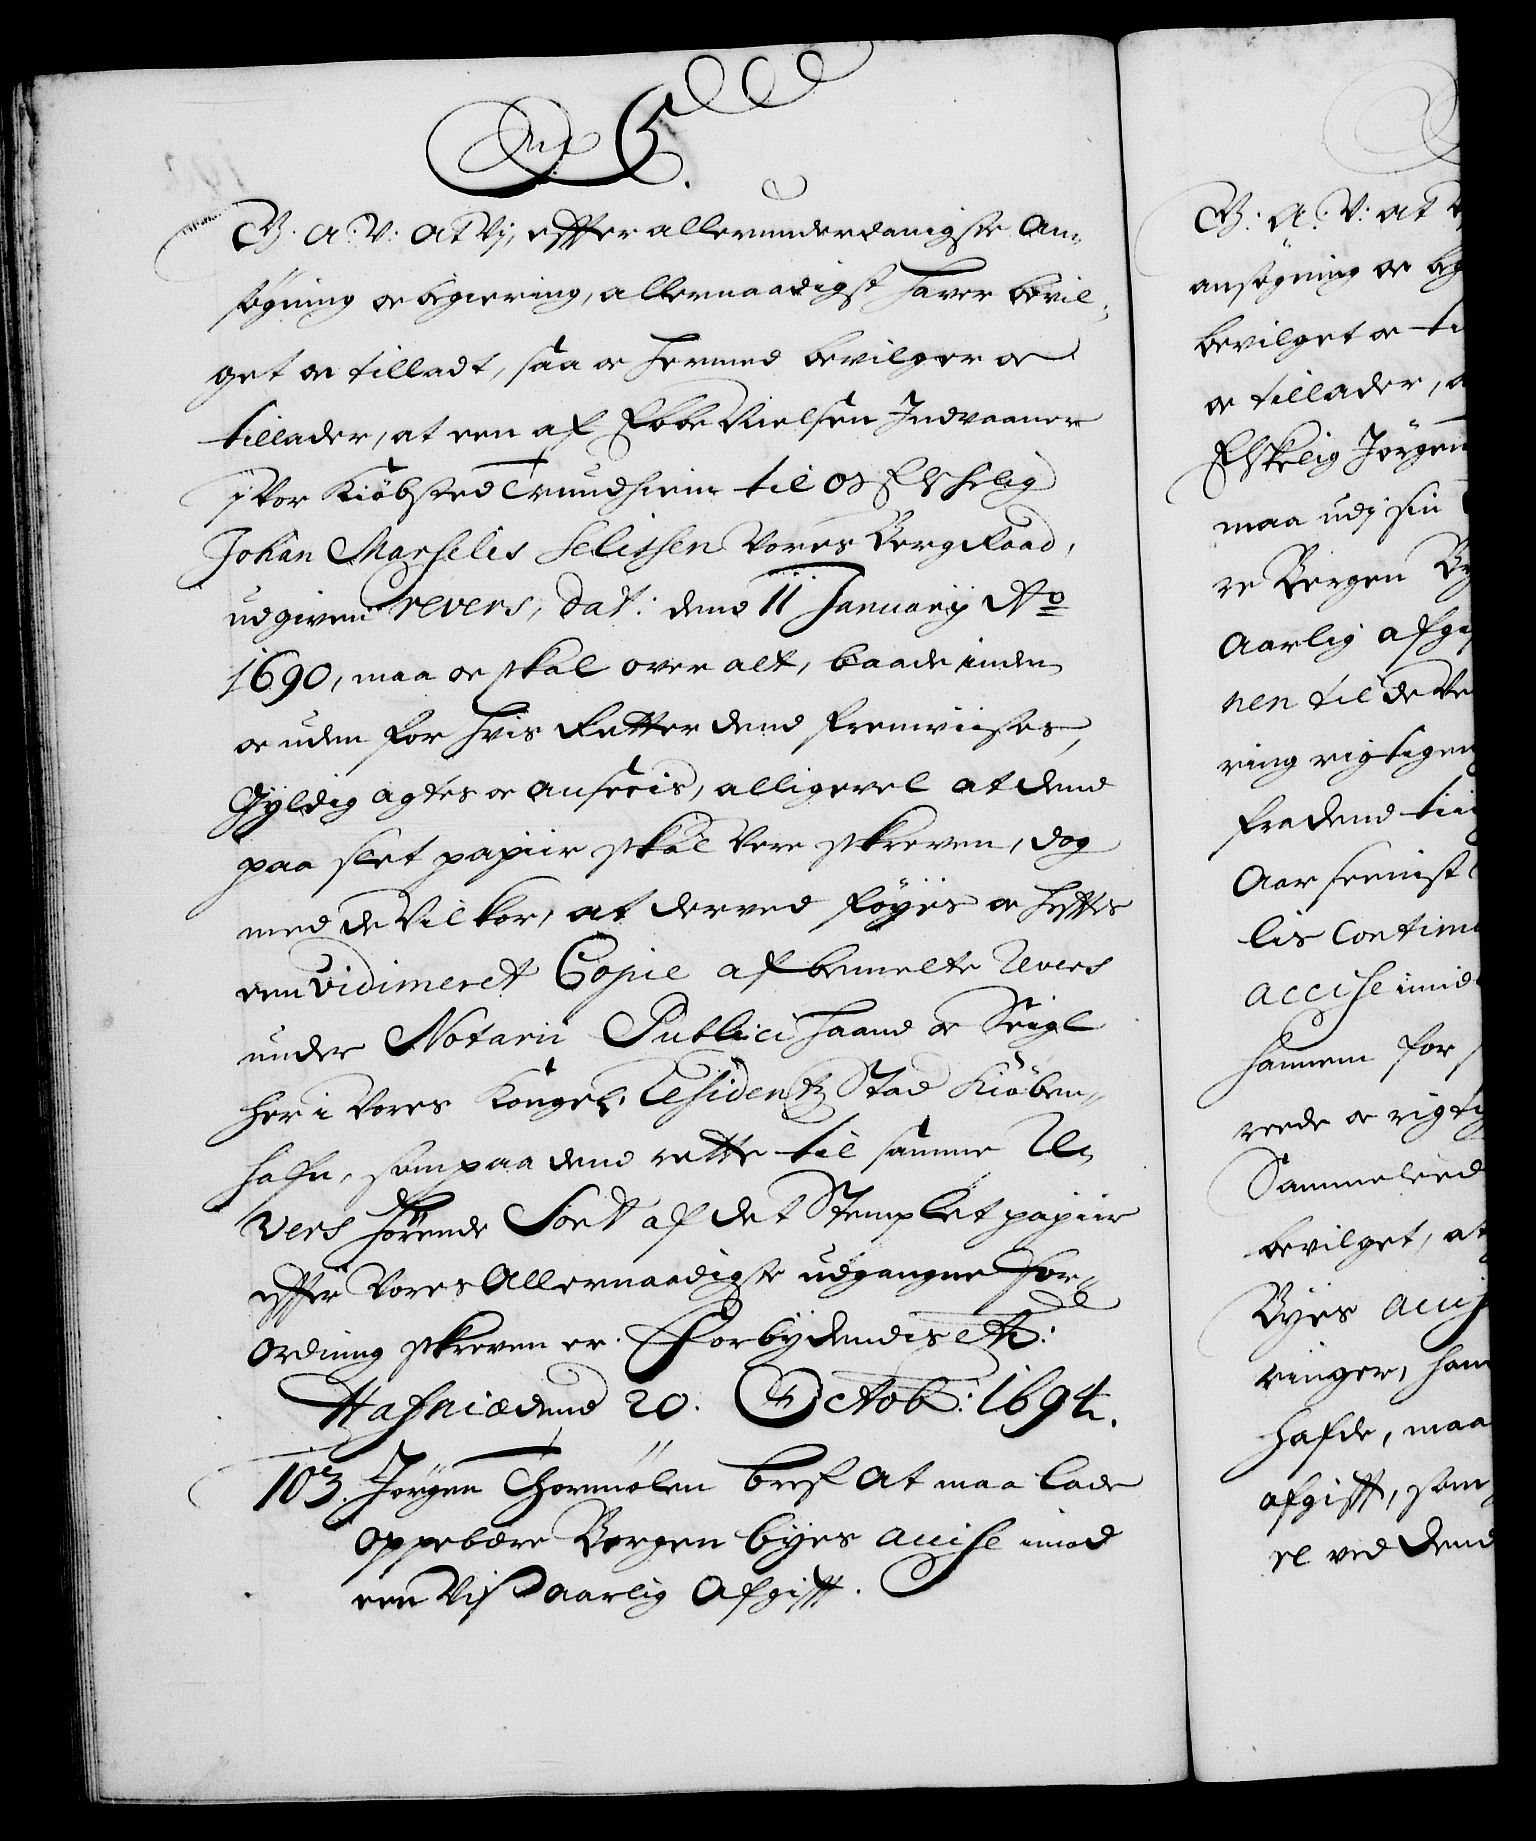 C 5.
G. A. V: at Vj, effter allerunderdanigste An-
søgning oc begiering, allernaadigst hafver bevil-
get oc tilladt, saa oc hermed bevilger oc
tillader, at een af Ebbe Nielsen Indvaaner
i Vor Kiöbsted Trundhiem til os Elskelig
Johan Marselis Selissen Vores BergRaad,
udgiven revers, dat: dend 11 Januarij Ao
1690, maa oc skal over alt, baade inden
oc uden for hvis Retter dend fremviises,
Gyldig agtes oc ansees, alligevel at dend
paa slet papiir skal Være skreven, dog
med de Vilkor, at derved føyes oc hefftes
een vidimeret Copie af bemelte Revers
under Notarii Publici haand oc Seigl
her i Vores Kongel: Residentz Stad Kiöben-
hafn, som paa dend rette til samme Re-
vers hørende Sort af det Stemplet papiir
effter Vores Allernaadigste udgangne For-
ordning skreven er. Forbydendis etc:
Hafniæ dend 20. Octob: 1694.
103. Jørgen Thormølen bref at maa lade
oppebære Bergen byes accise imod
een Vis aarlig Afgifft.
G: A: V: at
ansøgning oc
bevilget oc
oc tillader,
Elskelig Jørgen
maa udj sin
re Bergen
Aarlig
nen til de
ring rigtigen
fra dend
Aar
lis
accise imid
hannem for
reede oc
Sammeleed
bevilget, at
Byes
ringer,
hafde, maa
afgifft, som
el ved dend